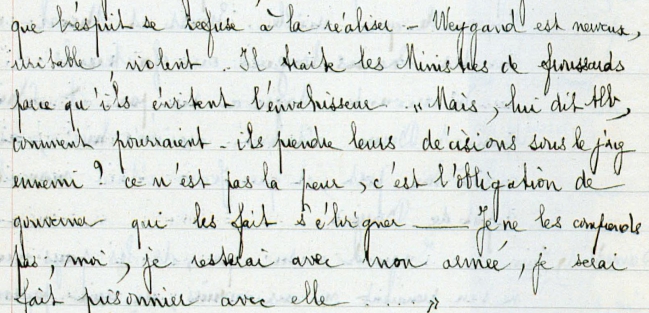 que l'esprit se refuse à la réaliser – Weygand est nerveux,
irritable, violent. Il traite les Ministres de froussards
parce qu'ils évitent l'envahisseur. "Mais, lui dit Alb,
comment pourraient-ils prendre leurs décisions sous le joug
ennemi? ce n'est pas la peur, c'est l'obligation de
gouverner qui les fait s'éloigner —— Je ne les comprends
pas, moi, je resterai avec mon armée, je serai
fait prisonnier avec elle ...."